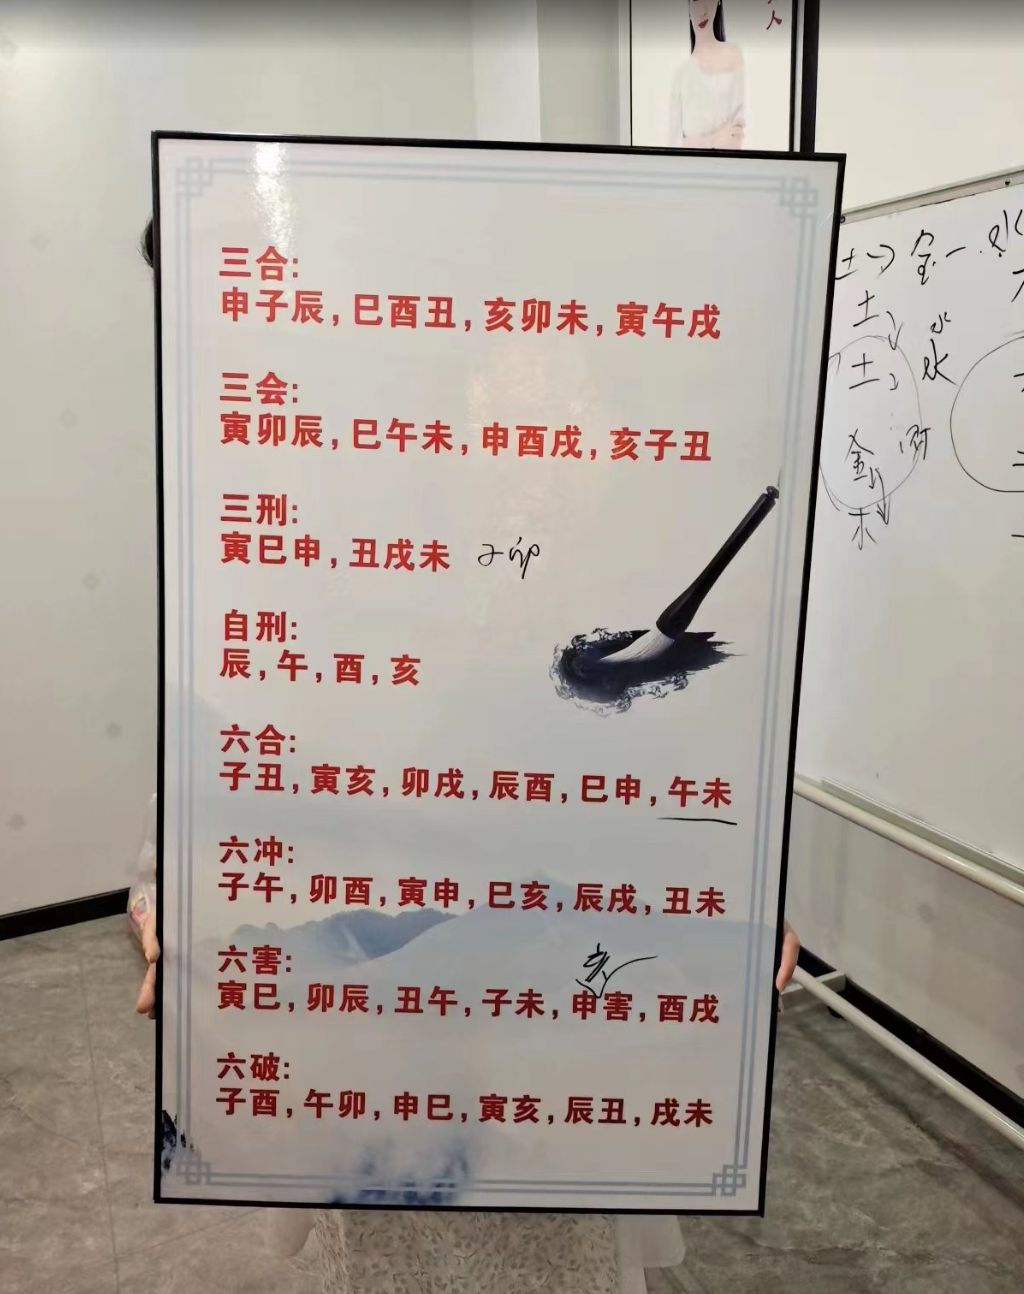 人
三合:
申子辰,巳酉丑,亥卯未,寅午戌
三会:
寅卯辰,巳午未,申酉戌,亥子丑
三刑:
寅巳申,丑戌未 子卯
自刑:
辰,午,酉,亥
六合:
子丑,寅亥,卯戌,辰酉,巳申,午未
六冲:
子午,卯酉,寅申,巳亥,辰戌,丑未
六害:
亥
寅巳,卯辰,丑午,子未,申害,酉戌
六破:
子酉,午卯,申巳,寅亥,辰丑,戌未
土→金一水
土
水
土
水
金
木